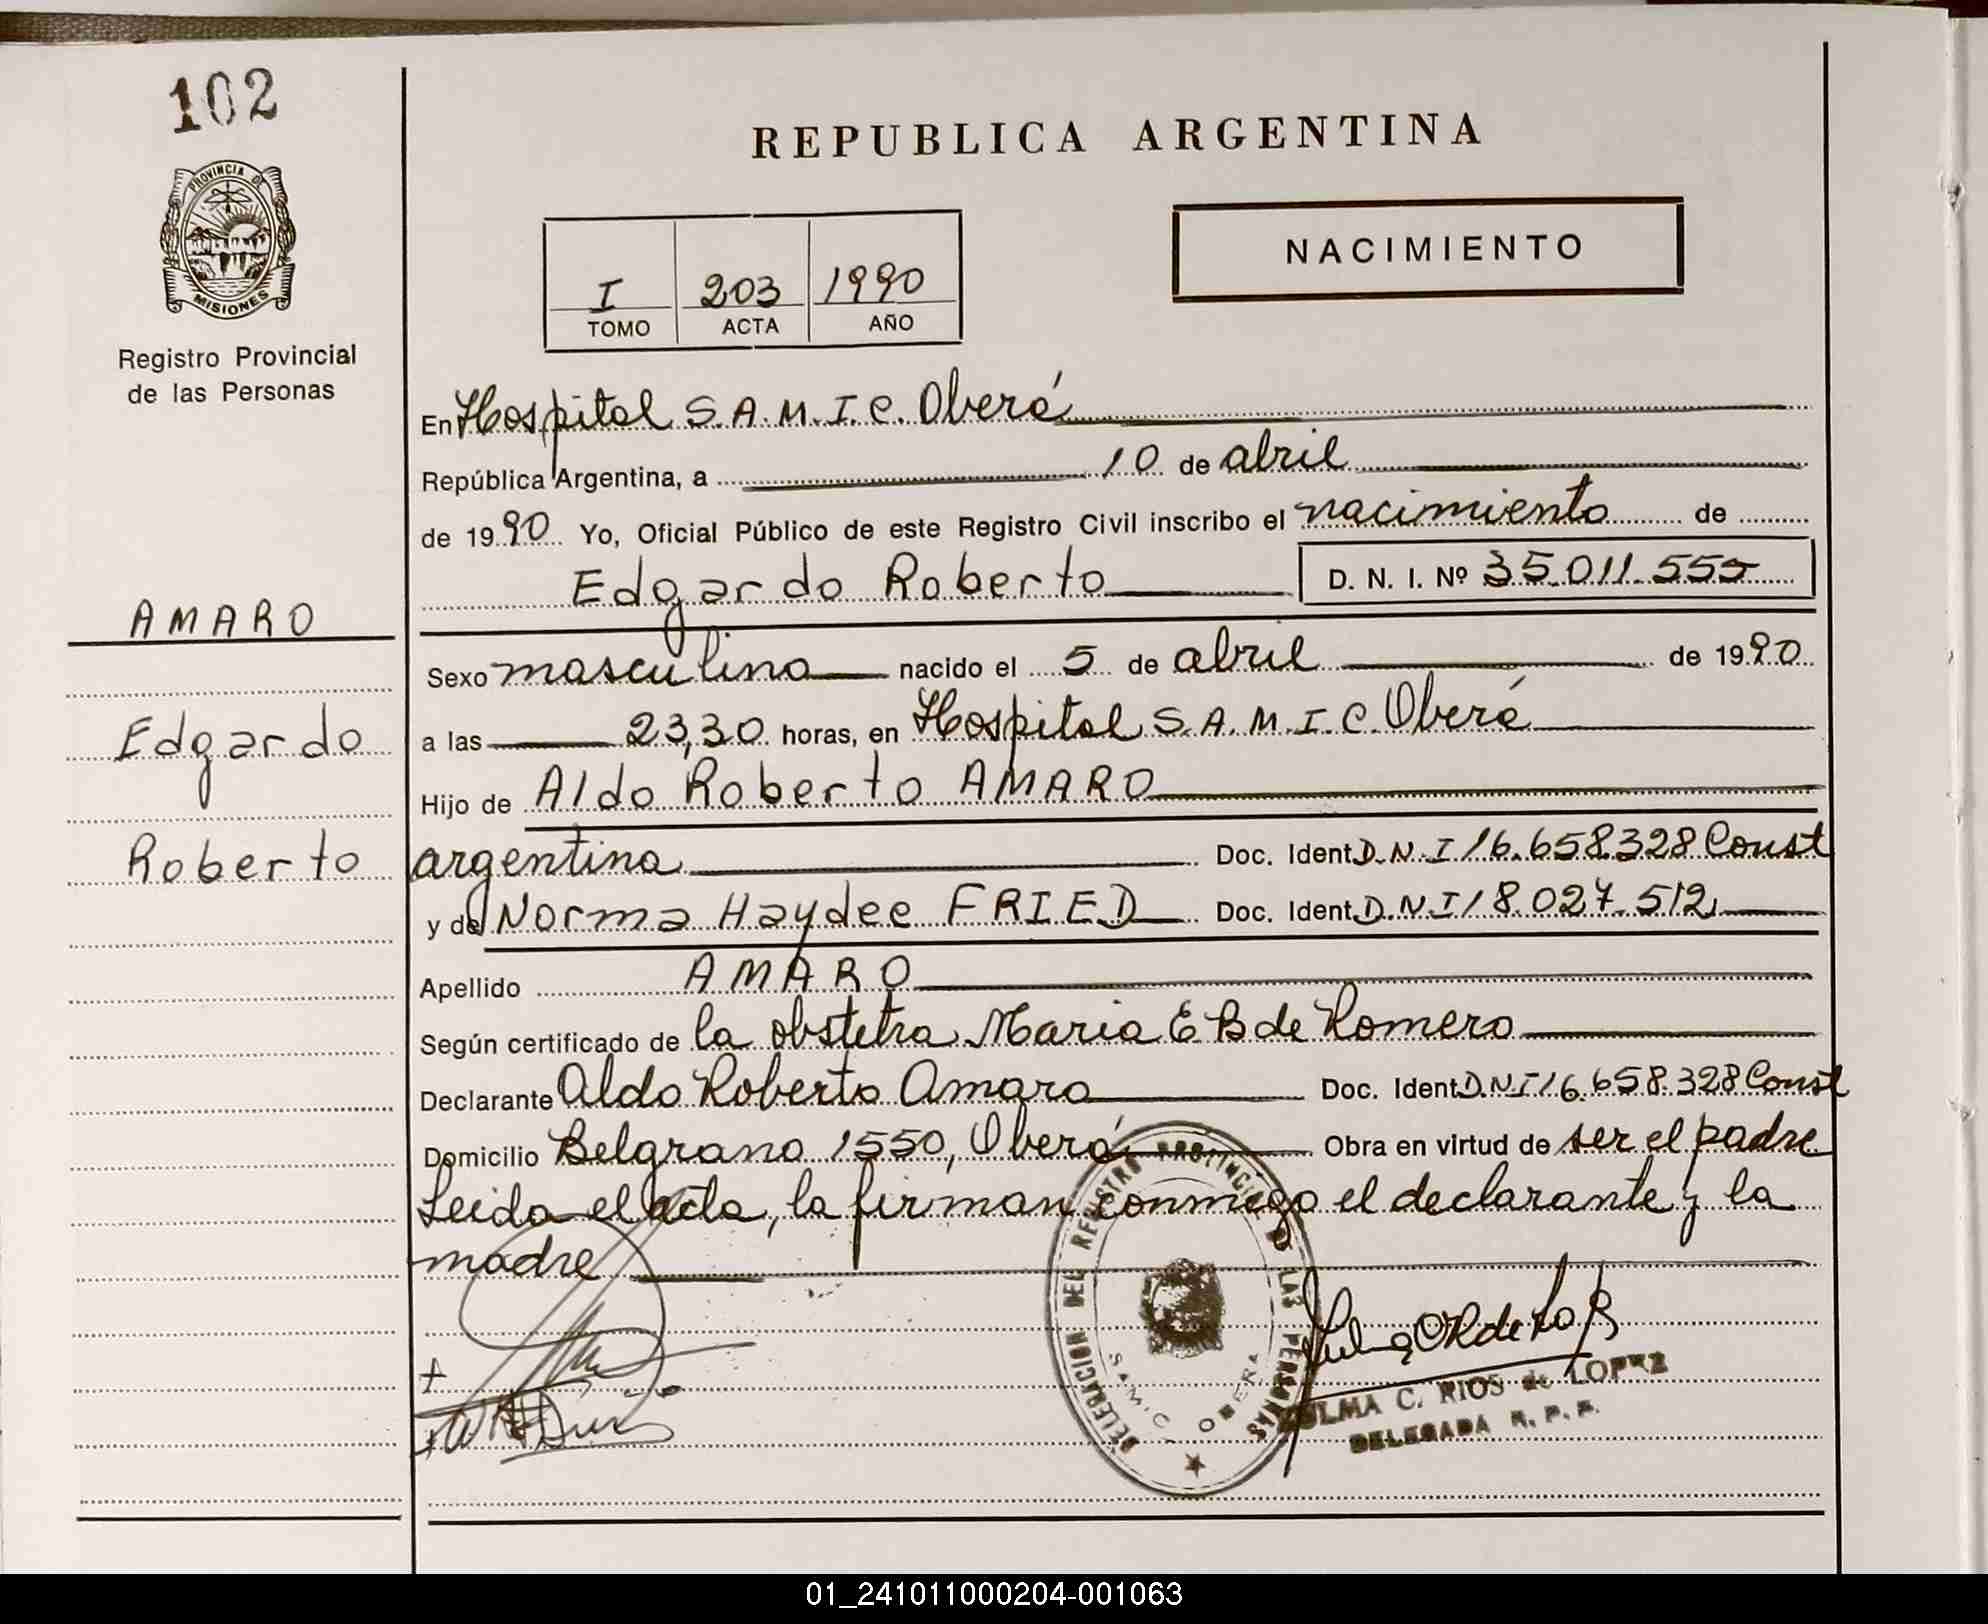 102
PROVINCIA DE
MISIONES
Registro Provincial
de las Personas
AMARO
Edgardo
Roberto
REPUBLICA ARGENTINA
I 203 1990
TOMO ACTA AÑO
NACIMIENTO
En Hospital S.A.M.I.C. Oberá
República Argentina, a 10 de abril
de 1990 Yo, Oficial Público de este Registro Civil inscribo el nacimiento de
Edgardo Roberto D. N. I. Nº 35.011.555
Sexo masculino nacido el 5 de abril de 1990
a las 23,30 horas, en Hospital S.A.M.I.C. Oberá
Hijo de Aldo Roberto AMARO
argentina Doc. Ident. D.N.I 16.658.328 Const
y de Norma Haydee FRIED Doc. Ident. D.N.I 18.027.512
Apellido AMARO
Según certificado de la obstetra Maria E B de Romero
Declarante Aldo Roberto Amaro Doc. Ident. D.N.I 16.658.328 Const
Domicilio Belgrano 1550, Oberá Obra en virtud de ser el padre
Leida el acta, la firman conmigo el declarante y la
madre
DELEGACION DEL REGISTRO PROVINCIAL DE LAS PERSONAS
S.A.M.I.C. OBERA
ZULMA C. RIOS de LOPEZ
DELEGADA R. P. P.
01_241011000204-001063